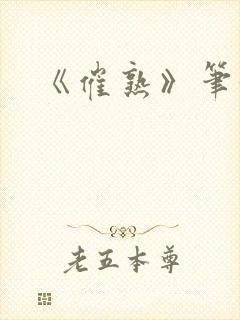 《催熟》筆
老五本尊